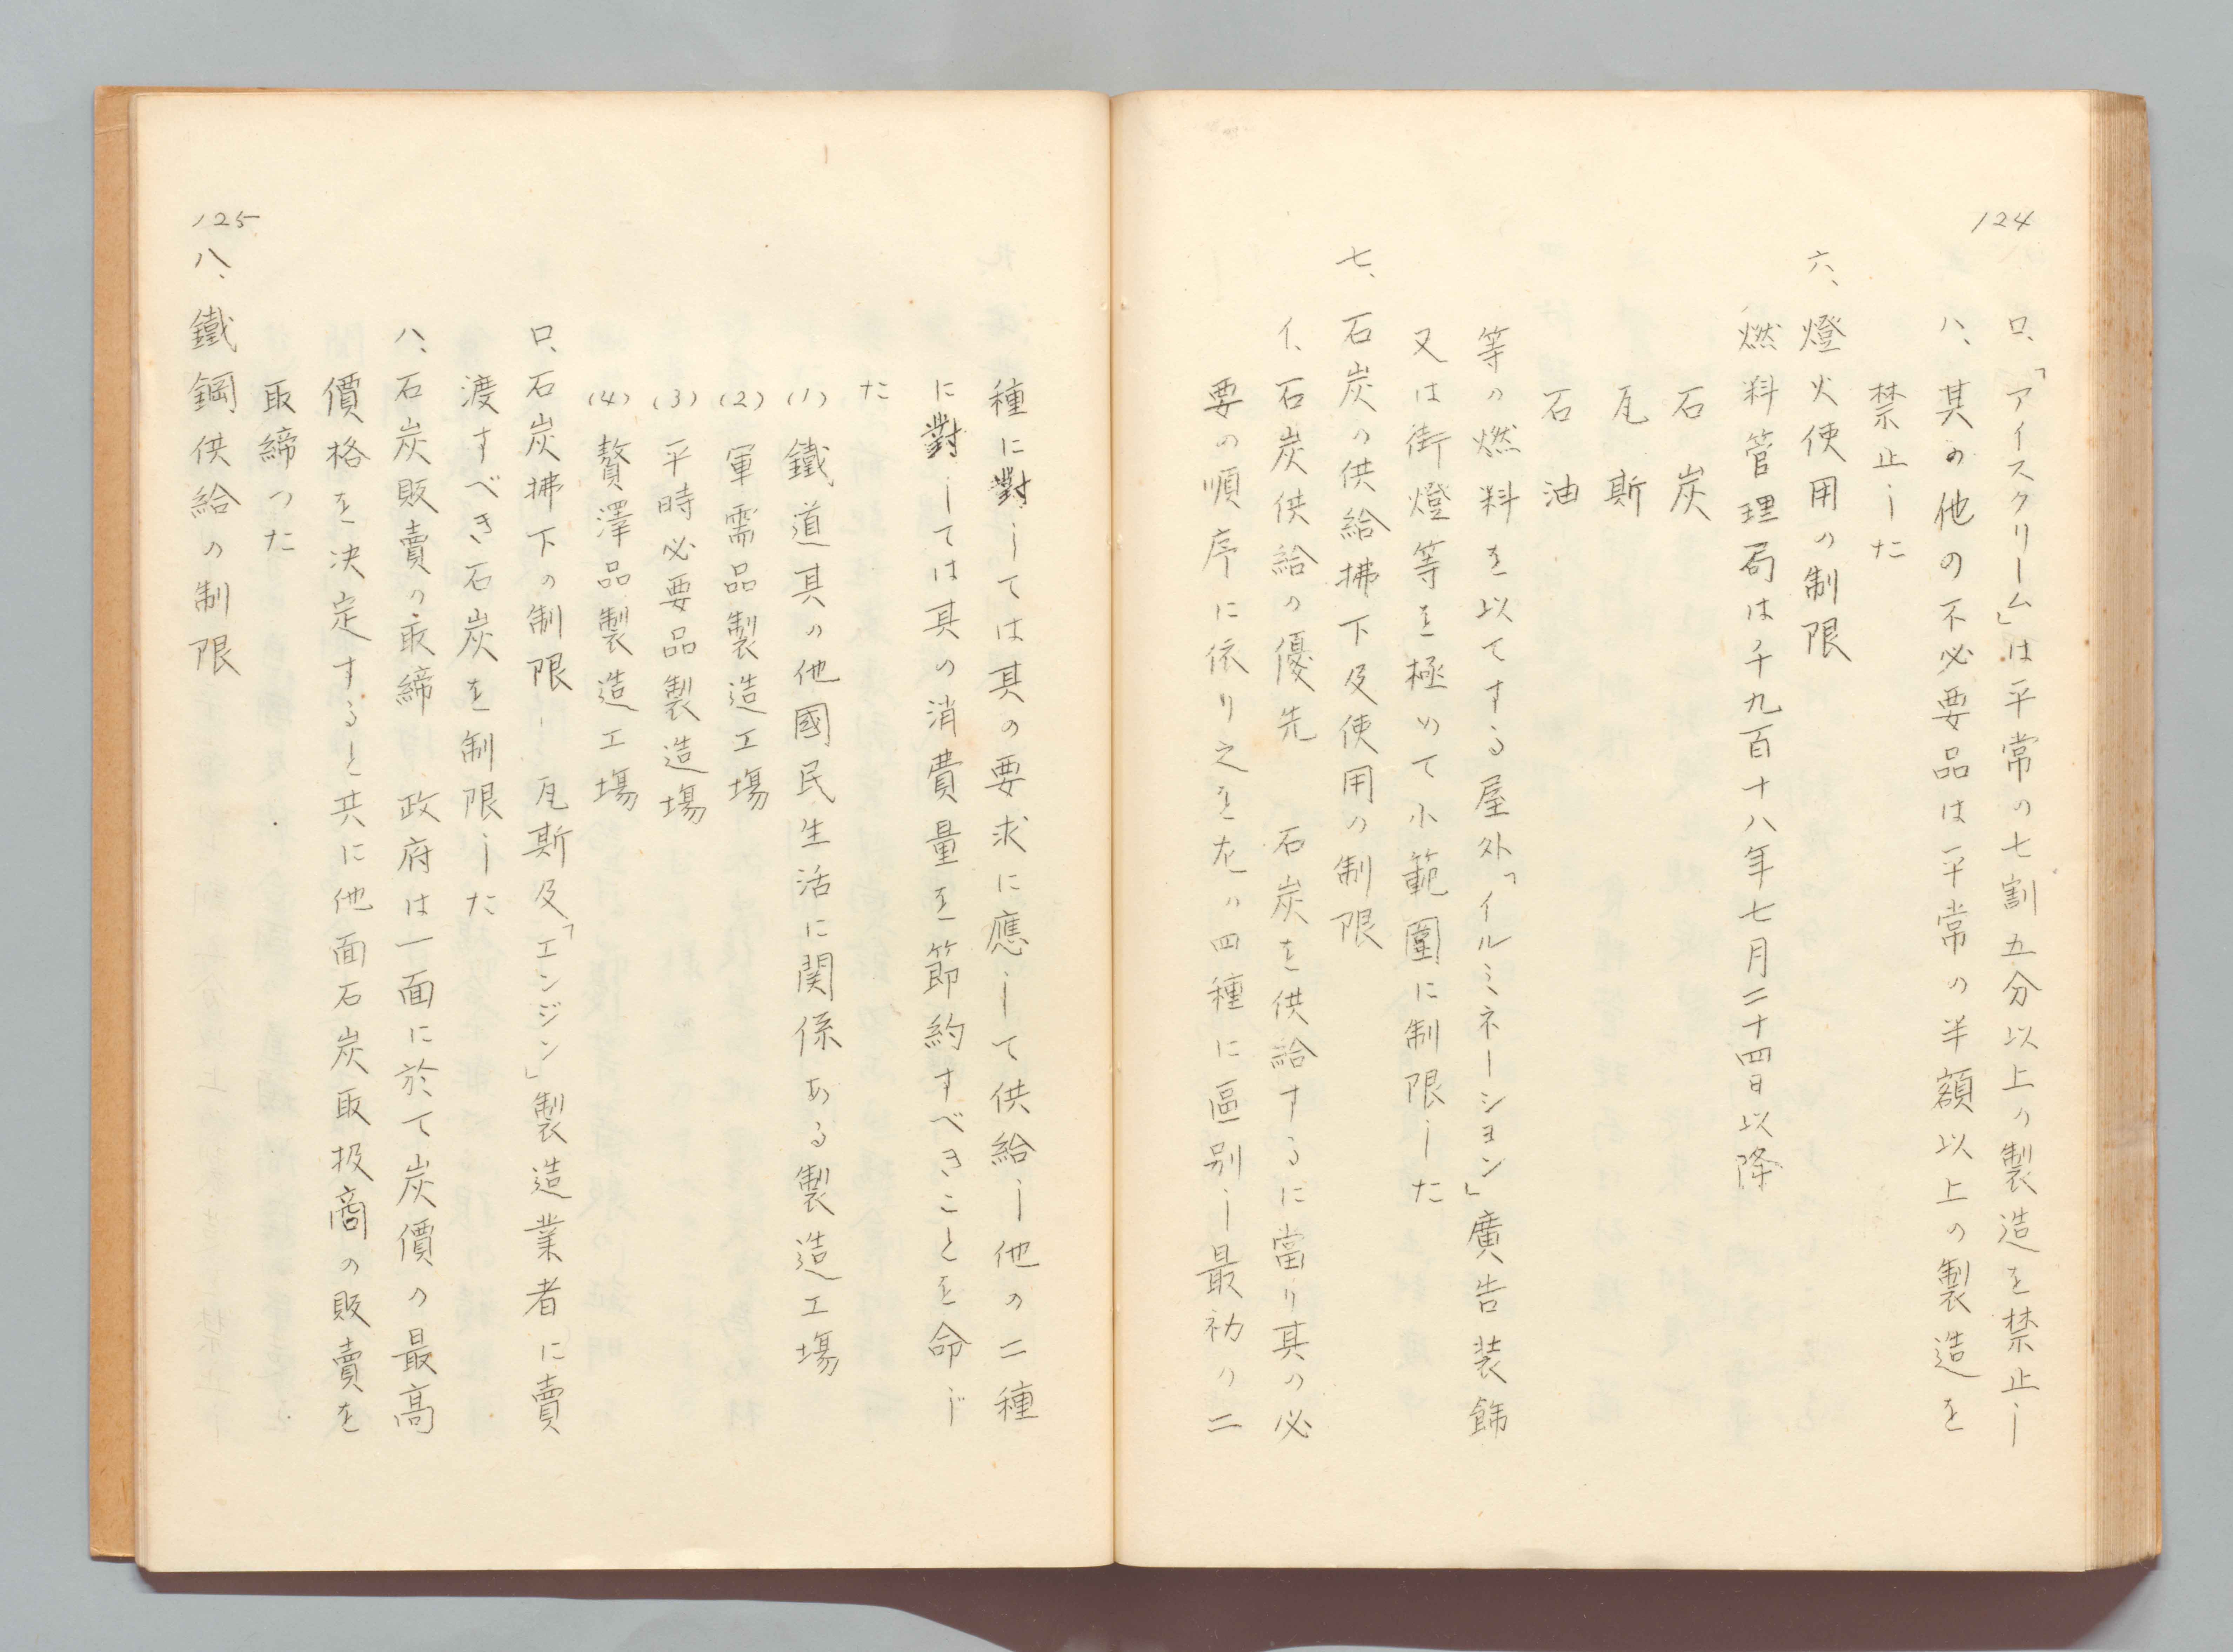 124
ロ、「アイスクリーム」は平常の七割五分以上の製造を禁止し
ハ、其の他の不必要品は平常の半額以上の製造を
禁止した
六、燈火使用の制限
燃料管理局は千九百十八年七月二十四日以降
石炭
瓦斯
石油
等の燃料を以てする屋外「イルミネーション」廣告装飾
又は街燈等を極めて小範圍に制限した
七、石炭の供給拂下及使用の制限
イ、石炭供給の優先　石炭を供給するに當り其の必
要の順序に依り之を左の四種に區別し最初の二
種に對しては其の要求に應じて供給し他の二種
に對しては其の消費量を節約すべきことを命じ
た
(1) 鐵道其の他國民生活に関係ある製造工場
(2) 軍需品製造工場
(3) 平時必要品製造場
(4) 贅澤品製造工場
ロ、石炭拂下の制限－瓦斯及「エンジン」製造業者に賣
渡すべき石炭を制限した
ハ、石炭販賣の取締　政府は一面に於て炭價の最高
價格を決定すると共に他面石炭取扱商の販賣を
取締つた
八、鐵鋼供給の制限
125